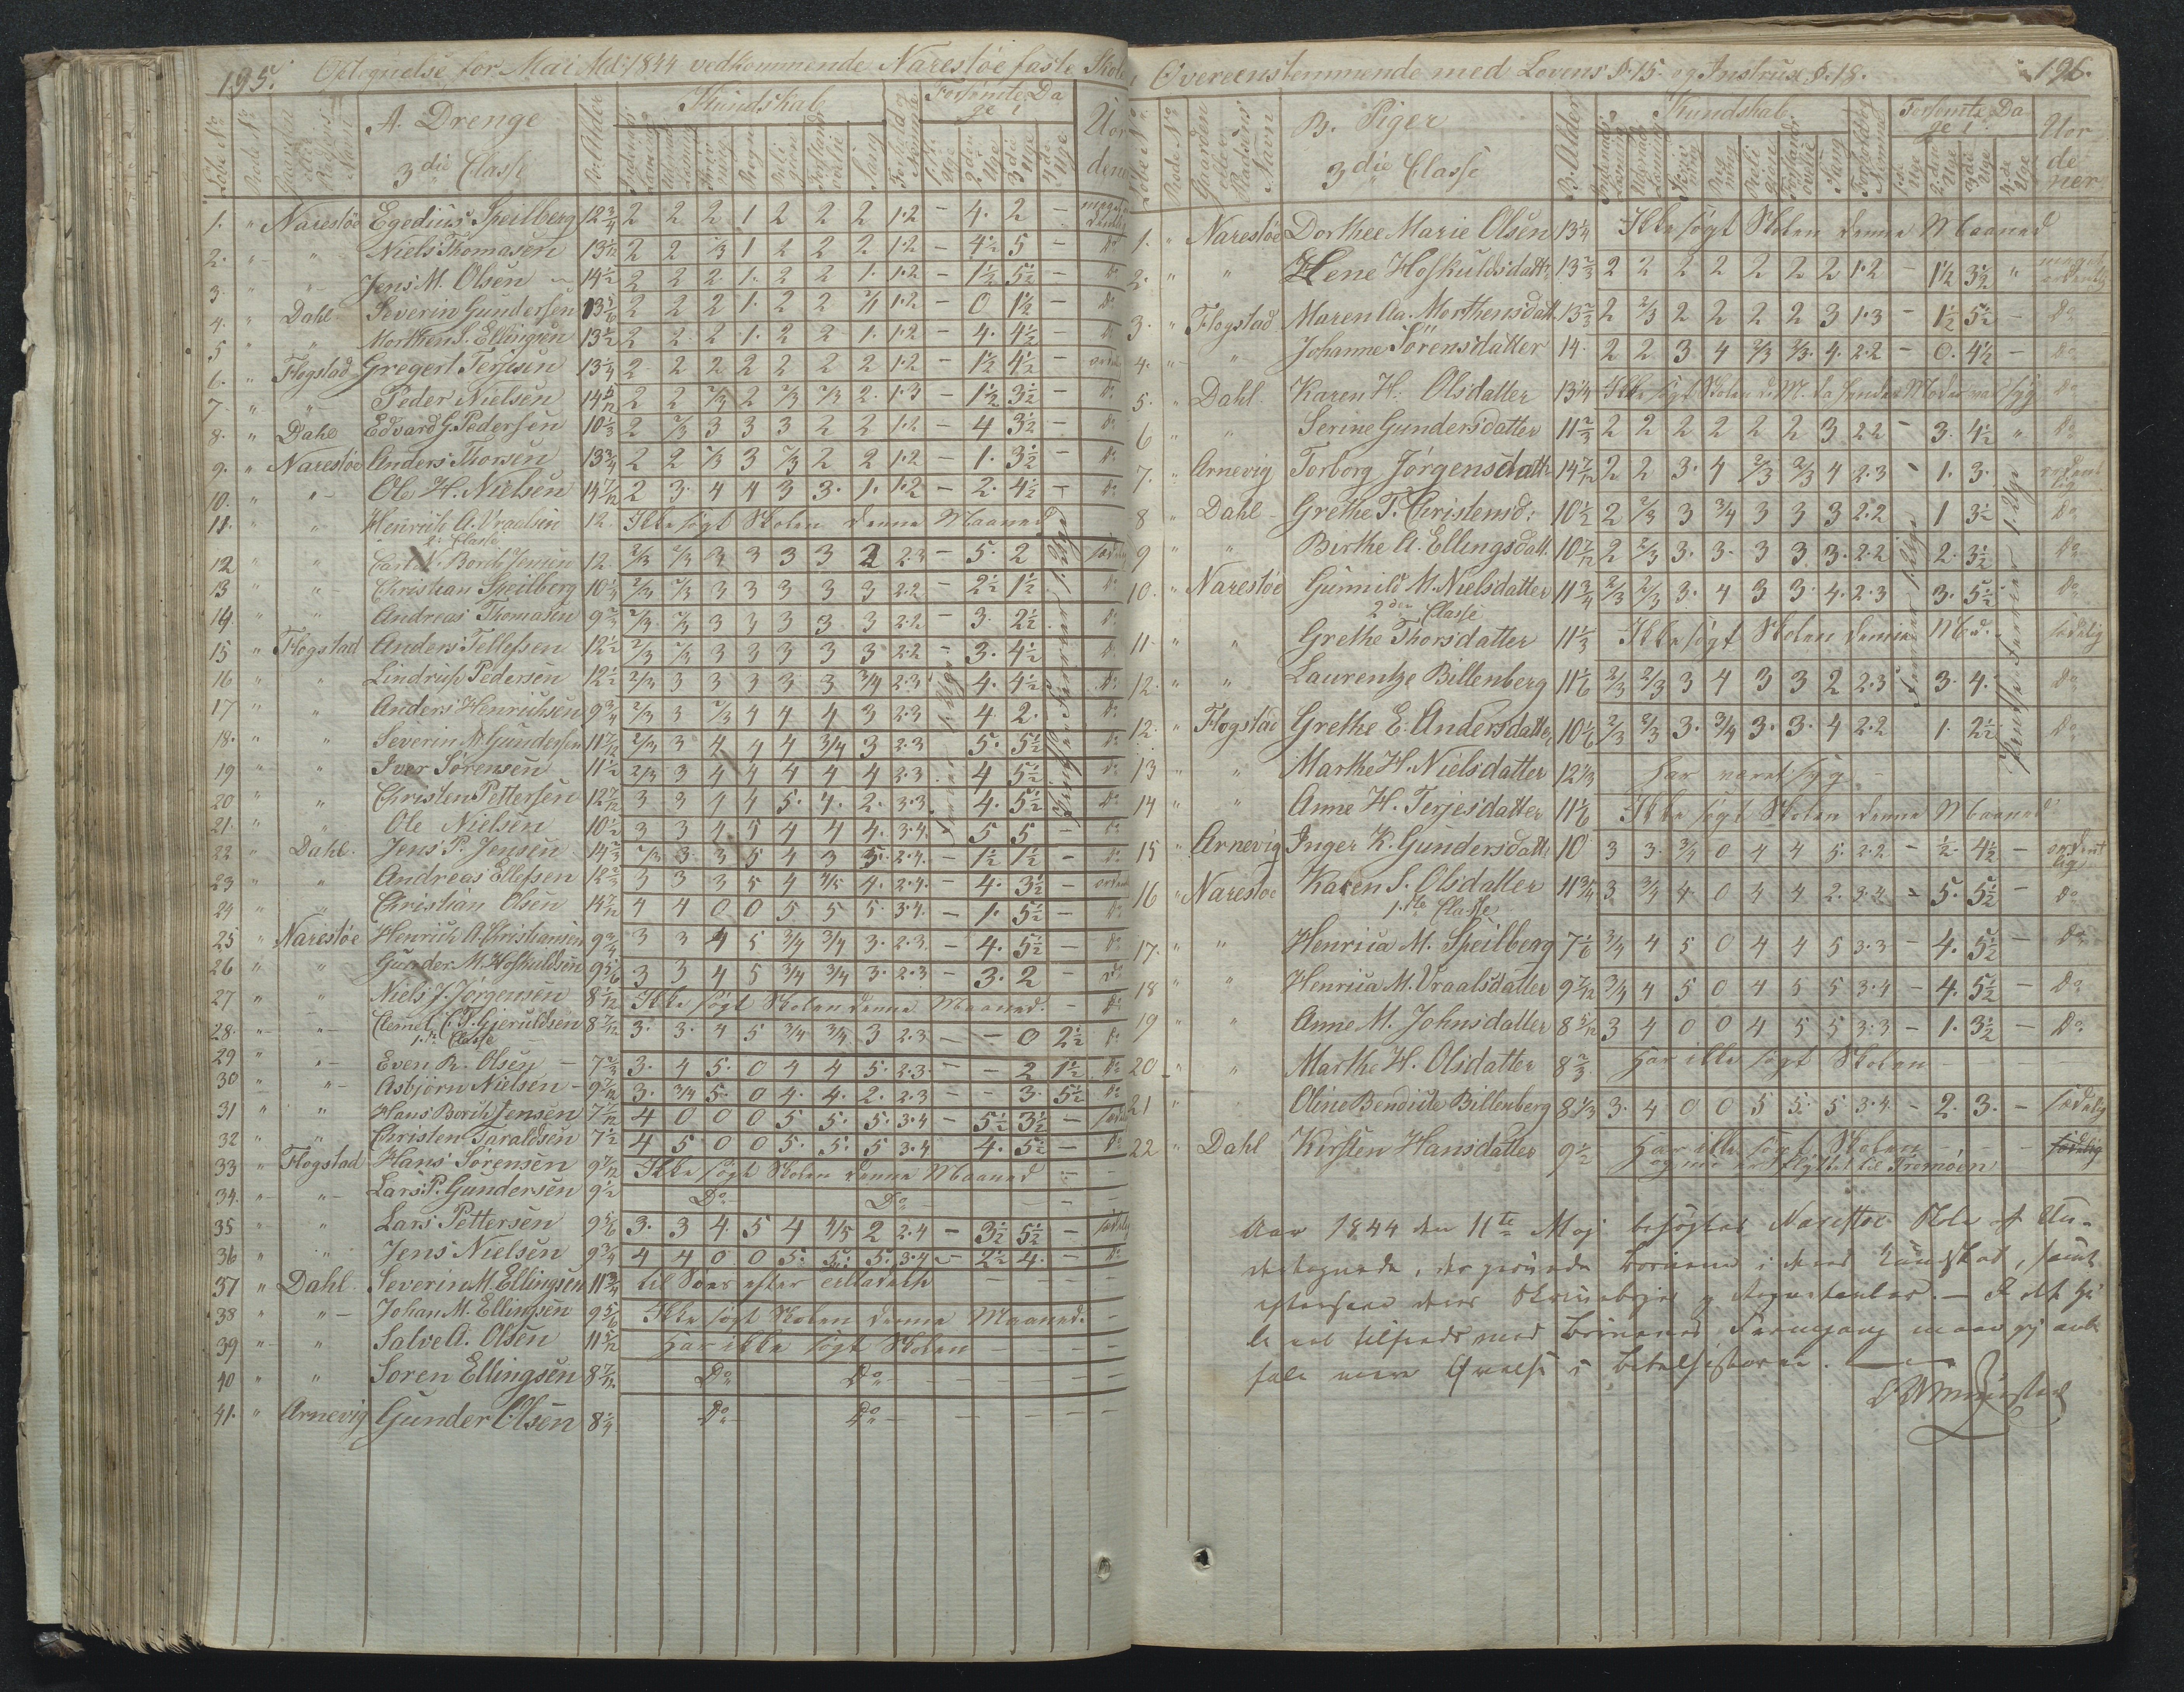 195. Optegnelse for Mai Md: 1844 vedkommende Narestöe faste Skole,
A. Drenge
3die Classe
Kundskab
Forsömte Dage i
1. " Narestöe Egedius Speilberg 12 3/4 2 2 2 1 2 2 2 1·2 - 4. 2 -
2. " " Niels Thomasen 2 2 2/3 1 2 2 2 1·2 - 4 1/2 5 - Do
3 " " Jens M. Olsen 14 1/2 2 2 2 1. 2 2 1. 1·2 - 1 1/2 5 1/2 - Do
4. " Dahl Severin Gundersen 13 5/6 2 2 2 1. 2 2 1·2 - 0 1 1/2 - Do
5 " " Morthen S. Ellingsen 13 1/2 2 2 2 1. 2 2 1. 1·2 - 4. 4 1/2 - Do
6. " Flogstad Gregert Terjesen 13 1/4 2 2 2 2 2 2 2 1·2 - 1 1/2 4 1/2 -
7 " " Peder Nielsen 2 2 2/3 2 2/3 2/3 2. 1·3 - 1 1/2 3 1/2 - Do
8. " Dahl Edvard G. Pedersen 10 1/3 2 2/3 3 3 3 2 2 1·2 - 4 3 1/2 - Do
9. " Narestöe Anders Thorsen 13 3/4 2 2 2/3 3 2/3 2 2 1·2 - 1. 3 1/2 - Do
10. " " Ole H. Nielsen 14 7/12 2 3. 4 4 3 3. 1. 1·2 - 2. 4 1/2 - Do
11. " " Henrich A. Vraalsen 12. Ikke søgt Skolen denne Maaned
2. Classe
12 " " Carl N. Borch Jensen 12. 2/3 2/3 3 3 3 3 2 2·3 - 5. 2
13 " " Christian Speilberg 10 1/4 2/3 2/3 3 3 3 3 3 2·2 - 2 1/2 1 1/2 Do
14. " " Andreas Thomasen 9 2/3 2/3 2/3 3 3 3 3 3 2·2 - 3. 2 1/2 Do
15 " Flogstad Anders Tellefsen 12 1/2 2/3 2/3 3 3 3 3 3 2·2 - 3. 4 1/2 Do
16 " " Lindrup Pedersen 12 1/2 2/3 3 3 3 3 3 3/4 2·3 4. 4 1/2 Do
17 " " Anders Henrichsen 9 3/4 2/3 3 2/3 4 4 4 3 2·3 4. 2. Do
18. " " Severin N. Gundersen 11 7/12 2/3 3 4 4 4 3/4 3 2·3 5. 5 1/2 Do
19 " " Iver Sörensen 11 1/2 2/3 3 4 4 4 4 4 2·3 4 5 1/2 Do
20 " " Christen Pettersen 12 7/12 3 3 4 4 5. 4. 2. 3·3 4. 5 1/2 Do
21. " " Ole Nielsen 10 1/2 3 3 4 5 4 4 4. 3·4. 5 5 - Do
22 " Dahl. Jens P. Jensen 14 2/3 2/3 3 3 5 4 3 5. 2·4. - 1 1/2 1 1/2 - Do
23 " " Andreas Ellefsen 12 2/3 3 3 3 5 4 4/5 4. 2·4. - 4. 3 1/2 -
24 " " Christian Olsen 14 7/12 4 4 0 0 5 5 5. 3·4. - 1. 5 1/2 - Do
25 " Narestöe Henrich A. Christiansen 9 3/4 3 3 4 5 3/4 3/4 3. 2·3. - 4. 5 1/2 - Do
26 " " Gunder M. Hofkuldsen 9 5/6 3 3 4 5 3/4 3/4 3. 2·3 - 3. 2 - Do
27 " " Niels J. Jörgensen 8 1/12 Ikke søgt Skolen denne Maaned. - Do
28. " " Clemet C. T. Gjeruldsen 8 7/12 3. 3. 4 5 3/4 3/4 3 2·3 - - 0 2 1/2 Do
1ste Classe
29 " " Even R. Olsen - 7 2/3 3. 4 5. 0 4 4 5. 2·3. - - 2 1 1/2 Do
30 " " Asbjörn Nielsen - 9 7/12 3. 3/4 5. 0 4. 4. 2. 2·3 - - 3. 5 1/2 Do
31 " " Hans Borch Jensen 7 1/12 4 0 0 0 5 5. 5. 3·4 - 5 1/2 3 1/2 -
32 " " Christen Taraldsen 7 1/2 4 5 0 0 5. 5. 5 3·4 - 4. 5 1/2 - Do
33 " Flogstad Hans Sörensen 9 7/12 Ikke søgt Skolen denne Maaned - -
34. " " Lars P. Gundersen 9 1/2 Do Do - - -
35 " " Lars Pettersen 9 5/6 3. 3 4. 5 4 4/5 2 2·4 - 3 1/2 5 1/2 -
36 " " Jens Nielsen 9 3/4 4 4 0 0 5. 5. 5. 3·4 - 2 1/2 4. - Do
37 " Dahl. Severin M. Ellingsen 11 3/4 til Søes efter - - - -
38 " " Johan M. Ellingsen 9 5/6 Ikke søgt Skolen denne Maaned. -
39 " " Salve A. Olsen 11 5/12 Har ikke søgt Skolen - - - -
40 " " Soren Ellingsen 8 7/12 Do Do - - - -
41. " Arnevig Gunder Olsen 8 1/4 Do Do - - - -
Overeensstemmende med Lovens §.15. og Instrux. §.18. 196.
B. Piger
3die Classe
B. Alder
Kundskab
Forsömte Dage i
Uordener
1. " Narestöe Dorthee Marie Olsen 13 1/4 Ikke søgt Skolen denne Maaned
2. " " Helene Hofkuldsdatter 13 2/3 2 2 2 2 2 2 2 1·2 - 1 1/2 3 1/2 " meget ordentlig
3. " Flogstad Maren Aa. Morthensdatt. 13 2/3 2 2/3 2 2 2 2 3 1·3 - 1 1/2 5 1/2 - Do
4. " " Johanne Sörensdatter 14. 2 2 3 4 2/3 2/3 4. 2·2 - 0. 4 1/2 - Do
5. " Dahl. Karen H. Olsdatter 13 1/4 Ikke søgt Skolen d. M. da hendes Moder var syg Do
6 " " Serine Gundersdatter 11 2/3 2 2 2 2 2 2 3 2·2 - 3. 4 1/2 " Do
7. " Arnevig Torborg Jörgensdatt. 14 7/12 2 2 3. 4 2/3 2/3 4 2·3 - 1. 3. ordentlig
8 " Dahl - Grethe T. Christensd: 10 1/2 2 2/3 3 3/4 3 3 3 2·2 1 3 1/2 Do
9 " " Birthe A. Ellingsdatt. 10 7/12 2 2/3 3. 3. 3 3 3. 2·2 2. 3 1/2 Do
10. " Narestöe Gunnild M. Nielsdatter 11 3/4 2/3 2/3 3. 4 3 3. 4. 2·3 3. 5 1/2 Do
2den Classe
11. " " Grethe Thorsdatter 11 1/3 Ikke søgt Skolen denne Md. sædelig
12. " " Laurentze Billenberg 11 1/6 2/3 2/3 3 4 3 3 2 2·3 3. 4. Do
12. " Flogstad Grethe E. Andersdatter 10 1/6 2/3 2/3 3. 3/4 3. 3. 4 2·2 1. 2 1/2 Do
13 " " Marthe H. Nielsdatter 12 1/3 har været syg -
14 " " Anne H. Terjesdatter 11 1/6 Ikke søgt Skolen denne Maaned
15 " Arnevig Inger K. Gundersdatt. 10 3 3. 3/4 0 4 4 5. 2·2 - 1/2. 4 1/2 - ordentlig
16 " Narestöe Karen S. Olsdatter 11 3/4 3 3/4 4. 0 4 4 2. 3·4 - 5. 5 1/2 - Do
1ste Classe
17. " " Henrica M. Speilberg 7 1/6 3/4 4 5 0 4 4 5 3·3 - 4. 5 1/2 - Do
18 " " Henrica M. Vraalsdatter 9 7/12 3/4 4 5 0 4 5 5 3·4 - 4. 5 1/2 - Do
19 " " Anne M. Johnsdatter 8 5/12 3 4 0 0 4 5 5 3·3 - 1. 3 1/2 - Do
20 " " Marthe H. Olsdatter 8 2/3 Har ikke søgt Skolen - -
21 " " Oline Bendicte Billenberg 8 1/3 3. 4 0 0 5 5. 5 3·4. - 2. 3. - sædelig
22 " Dahl Kirsten Hansdatter 9 1/2 Har ikke søgt Skolen - - - sædelig
og nu er flyttet til Tromöen
Aar 1844 den 11te Maj besøgtes Narestöe Skole af Un-
dertegnede, der prøvede Børnene i deres Kundskab, samt
eftersaae deres Skrivebøger og Regnetavler. - I det He-
le vel tilfreds med Børnenes Fremgang maae jeg anbe-
fale mere Øvelse i Bibelhistorien.